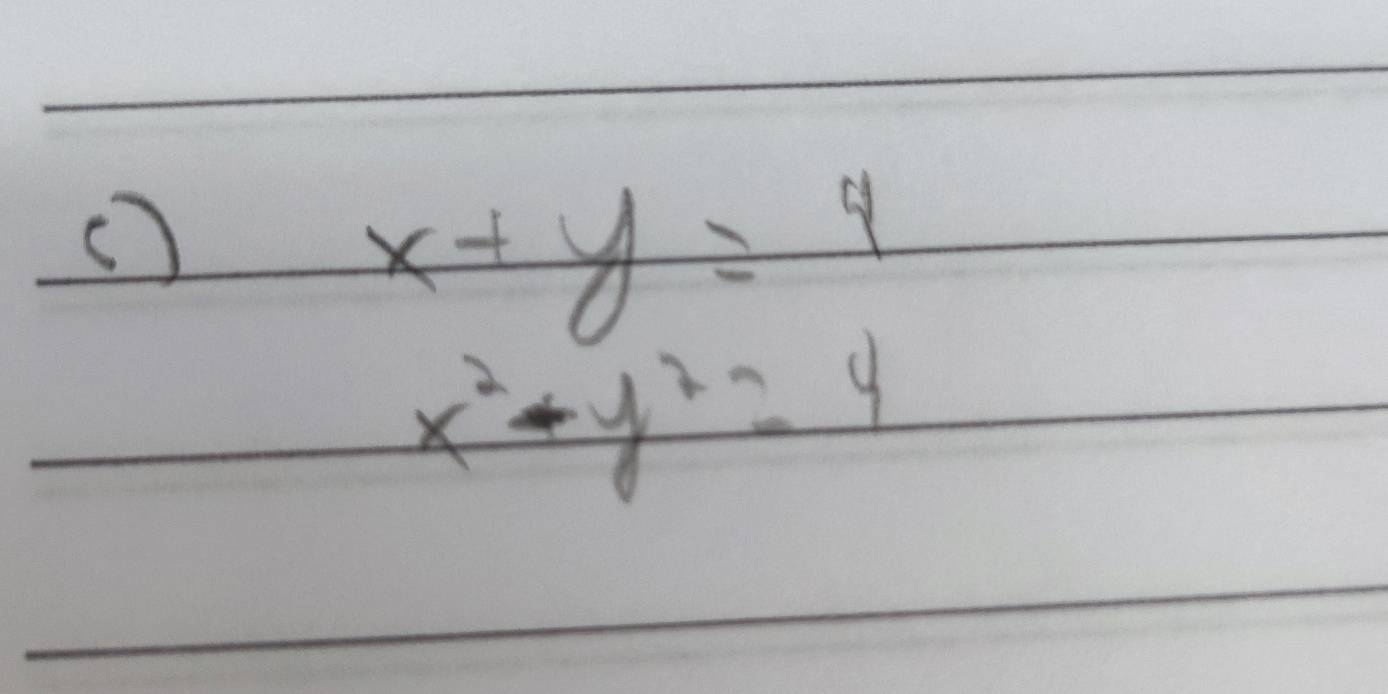 c) x + y = 4
x² - y² = 4